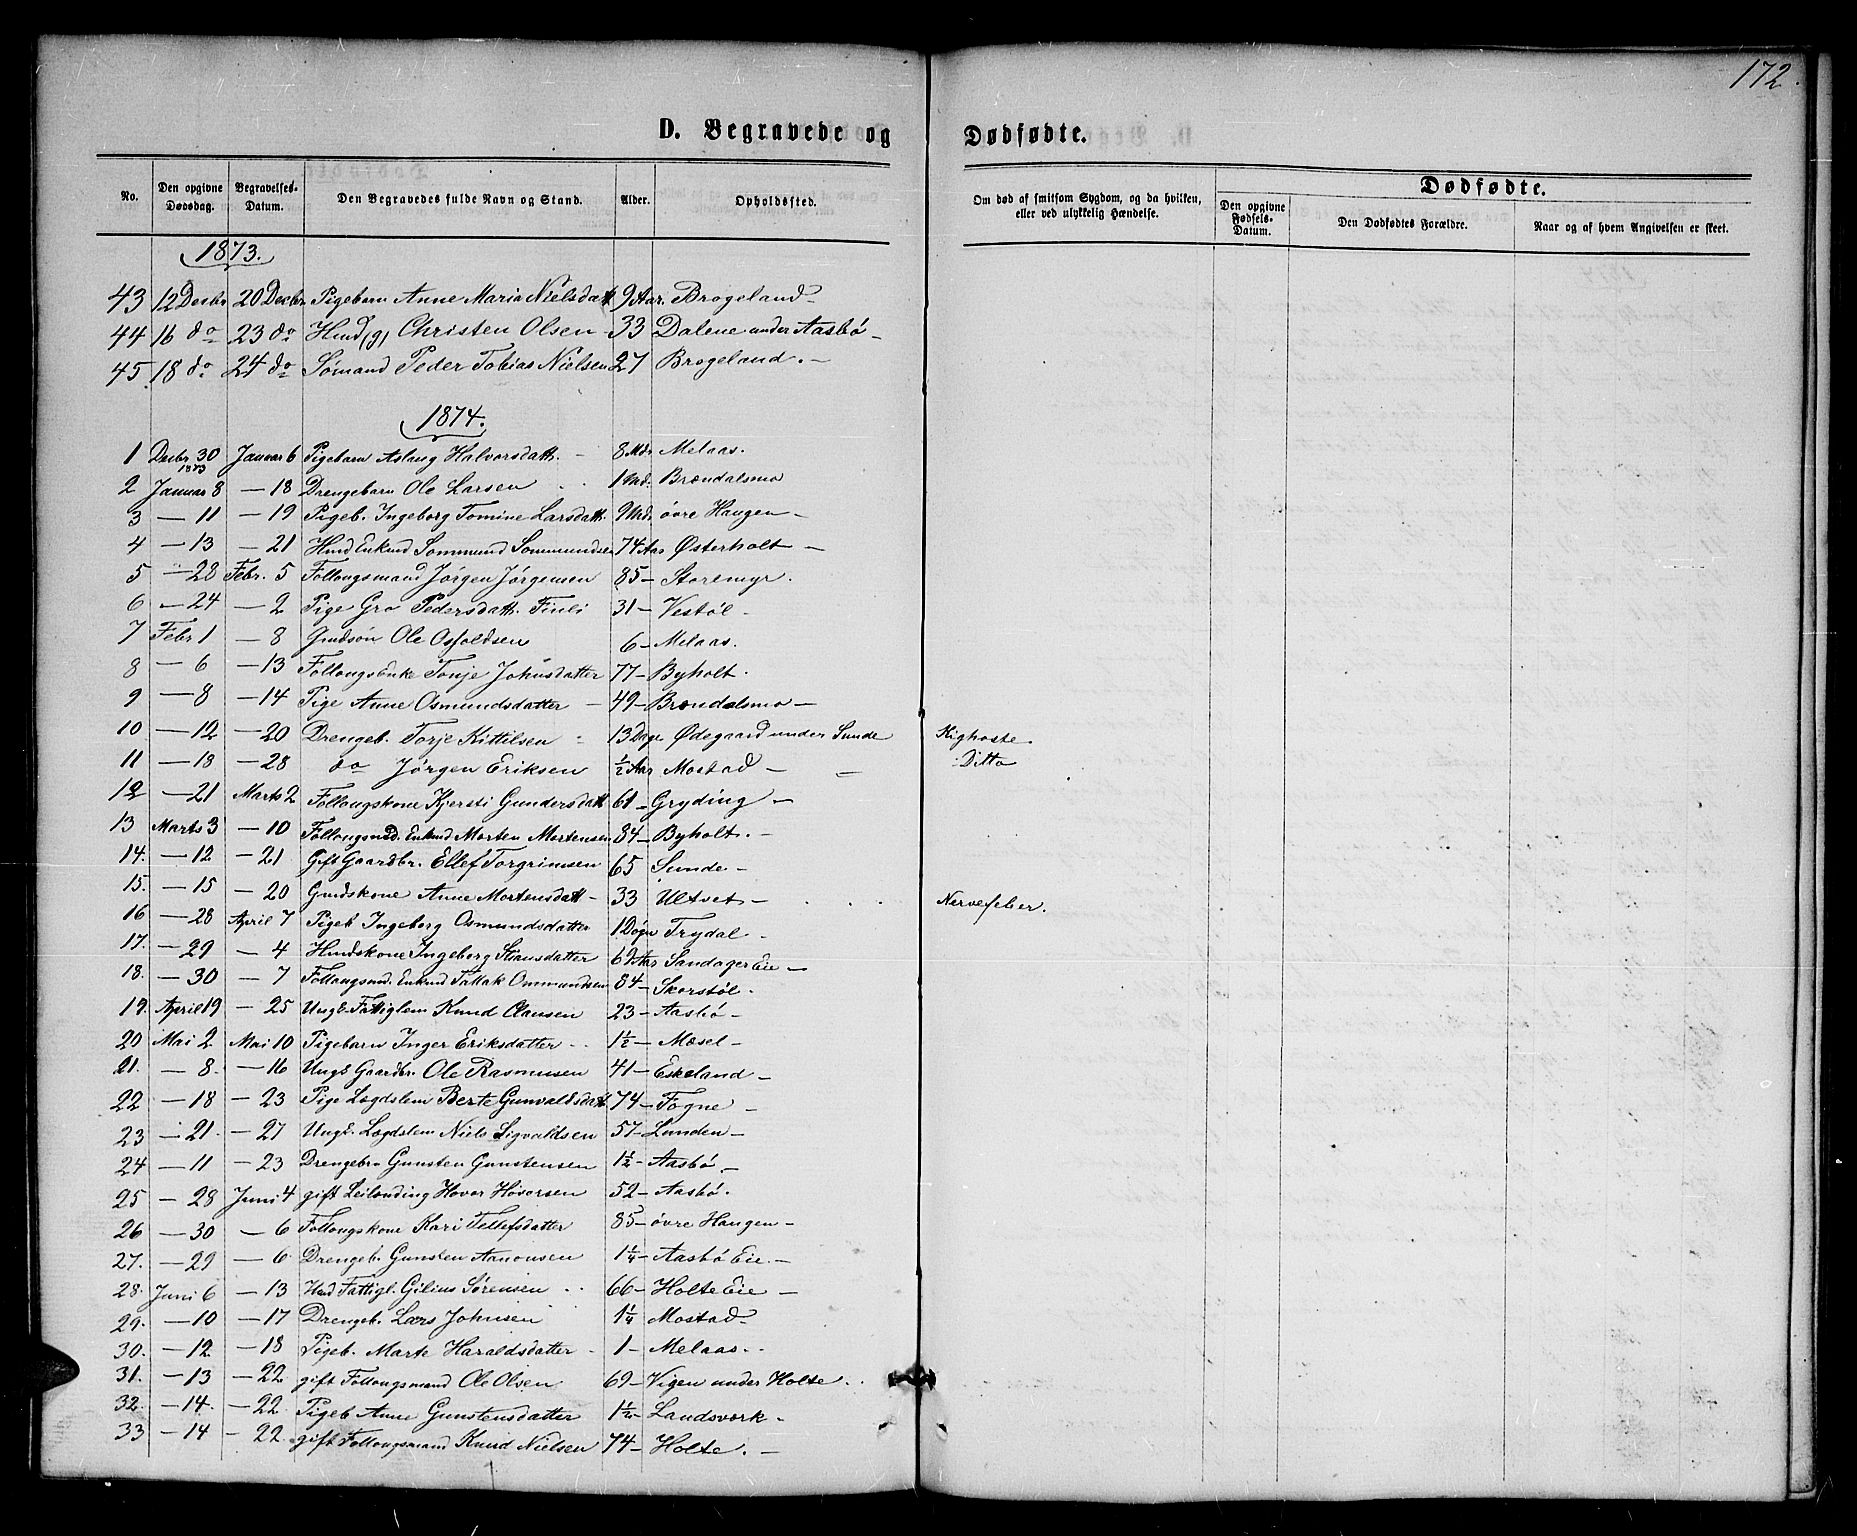 172.
D. Begravede og Dødfødte.
No. Den opgivne Dødsdag. Begravelses-Datum. Den Begravedes fulde Navn og Stand. Alder. Opholdssted. Om død af smitsom Sygdom, og da hvilken, eller ved ulykkelig Hændelse. Dødfødte. Den opgivne Fødsels-Datum. Den Dødfødtes Forældre. Naar og af hvem Angivelsen er skeet.
1873.
43 12 Decbr 20 Decbr Pigebarn Anne Maria Nielsdatt 9 Aar. Brogeland
44 16 do 23 do Hmd (g) Christen Olsen - 33 Dalene under Aasbø -
45. 18 do 24 do Sømand Peder Tobias Nielsen 27 Brogeland. -
1874.
1 Decbr 30 1873 Januar 6 Pigebarn Aslaug Halvorsdatt. - 8 Mdr Melaas.
2 Januar 8 - 18 Drengebarn Ole Larsen 1 Md. Brøndalsmo
3 - 11 - 19 Pigeb. Ingeborg Tomine Larsdatt. 9 Mdr. øvre Haugen -
4 - 13 - 21 Hmd Enkmd Sommund Sommundsen 74 Aar Østerholt -
5 - 28 Febr. 5 Follougsmand Jørgen Jørgensen 85 - Storemyr.
6 - 24 - 2 Pige Gro Pedersdatt. Finli 31 - Vestøl -
7 Febr 1 - 8 Gmdsøn Ole Osfoldsen 6 - Melaas.
8 - 6 - 13 Follougsenke Tonje Johnsdatter 77 - Byholt.
9 - 8 - 14 Pige Anne Osmundsdatter - 49 - Brøndalsmo -
10 - 12 - 20 Drengeb. Torje Kittilsen 13 Dage Ødegaard under Sunde Kighoste.
11 - 18 - 28 do Jørgen Eriksen ½ Aar Mostad - - Ditto
12 - 21 Marts 2 Follougskone Kjersti Gundersdatt 61 - Gryding -
13 Marts 3 - 10 Follougsmd. Enkmd Morten Mortensen 84 - Byholt. -
14. - 12 - 21 Gift Gaardbr. Ellef Torgrimsen 65 Sunde -
15. - 15 - 20 Gmdskone Anne Mortensdatt - 33 Ultvet - Nervefeber.
16 - 28 April 7 Pigeb Ingeborg Osmundsdatter 1 Døgn Trydal -
17. - 29 - 4 Hmdskone Ingeborg Stiansdatter 62 Aar Sandager Eie -
18. - 30 - 7 Follougsmd. Enkmd Tallak Ommundsen 84 - Skorstøl.
19. April 19 - 25 Ungk. Fattiglem Knud Olausen 23 - Aasbø -
20 Mai 2 Mai 10 Pigebarn Inger Eriksdatter - 1½ - Mæsel -
21. - 8. - 16 Ungk Gaardbr. Ole Rasmusen 41 - Eskeland -
22 - 18 - 23 Pige Lægdslem Berte Gunvaldsdatt 74 - Fogne -
23 - 21 - 27 Ungk. Lægdslem Niels Sigvaldsen 57 - Lunden -
24 - 11 - 23 Drengebn Gunsten Gunstensen 1½ - Aasbø. -
25 - 28 Juni 4 gift Leilending Hover Høversen 52 - Aasbø.
26 - 30 - 6 Follougskone Kari Tellefsdatter 85 - øvre Haugen -
27. - 29 - 6 Drengeb Gunsten Aanonsen 1¼ - Aasbø Eie. -
28. Juni 6 - 13 Hmd Fattigl. Gilius Sørensen 66 - Holte Eie -
29. - 10 - 17 Drengeb. Lars Johnsen 1¼ Mostad.
30. - 12 - 18 Pigeb. Marte Haraldsdatter 1 - Melaas. -
31. - 13 - 22 gift Follougsmand Ole Olsen 69 - Vigen under Holte.
32. - 14. - 22. Pigeb Anne Gunstensdatter 1½ - Landsværk -
33 - 14 - 22. gift Follougsmand Knud Nielsen 74 - Holte. -